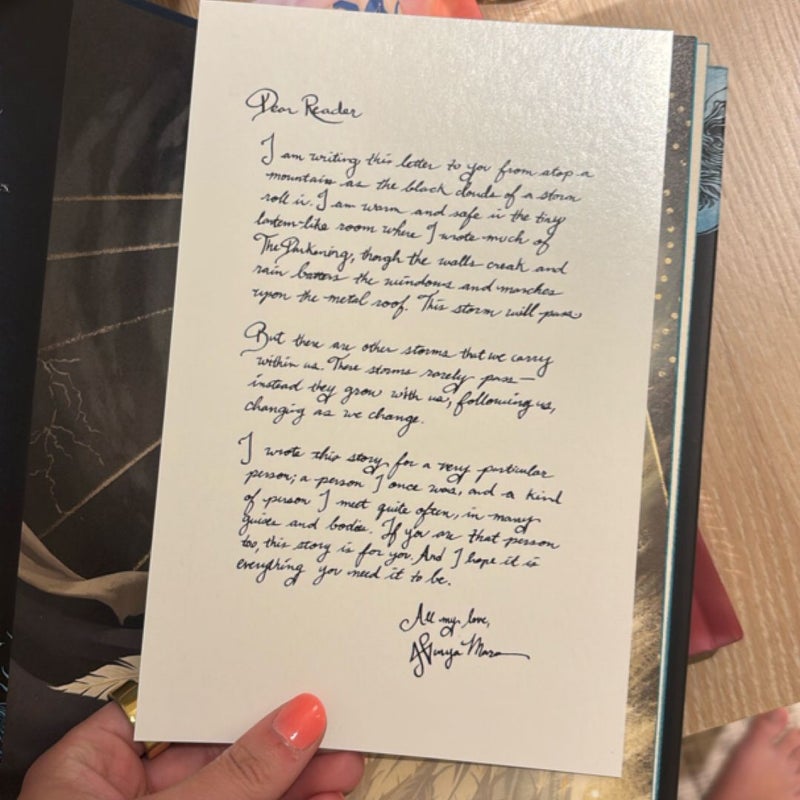 Dear Reader
I am writing this letter to you from atop a
mountain as the black clouds of a storm
roll in. I am warm and safe in the tiny
lantern-like room where I wrote much of
The Darkening, though the walls creak and
rain batters the windows and marches
upon the metal roof. This storm will pass.
But there are other storms that we carry
within us. These storms rarely pass—
instead they grow with us, following us,
changing as we change.
I wrote this story for a very particular
person; a person I once was, and a kind
of person I meet quite often, in many
guises and bodies. If you are that person
too, this story is for you. And I hope it is
everything you need it to be.
All my love,
Sunya Mara